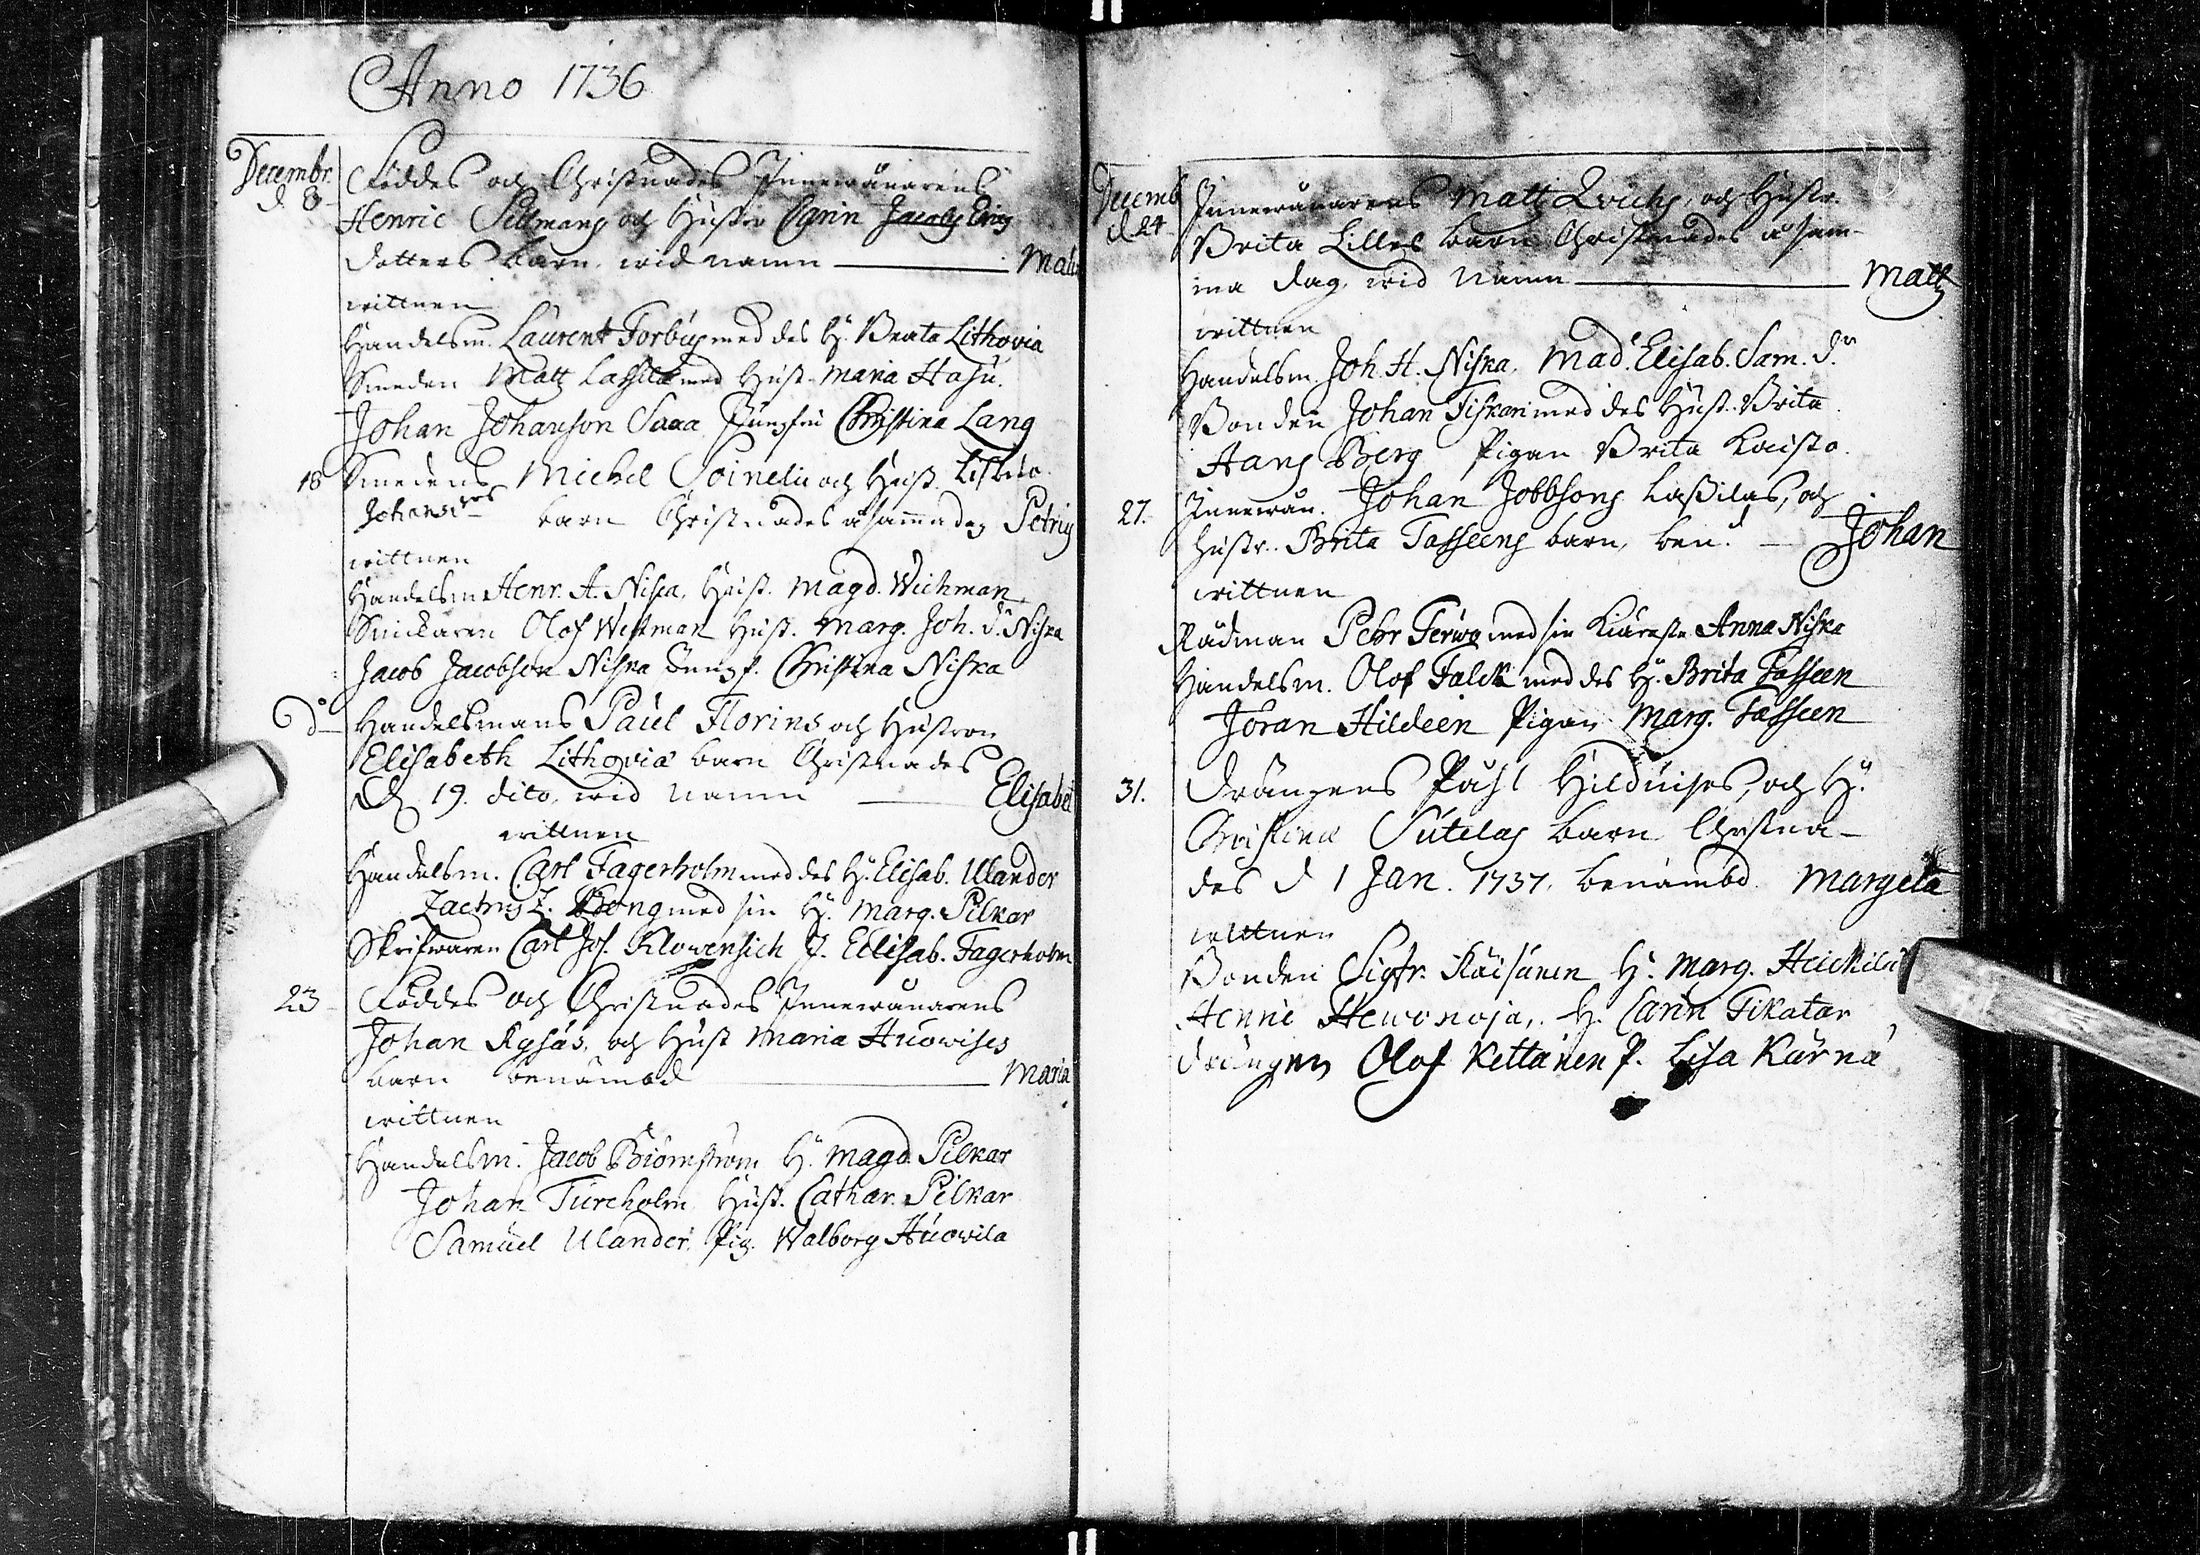 Anno 1736
Decembr.
d. 8
Föddes och Christnades Innewånarens
Henric Sittmans och Hustro Carin Jacobs Erics
dotters barn, wid namn ——— Mat
wittnen
Handelsm. Laurent Forbus med des H. Beata Lithovia
Smeden Matz Lassila med Hust. Maria Hasu.
Johan Johanson Saxa Jungfru Christina Lang
18 Smedens Michel Toinelii och Hust. Lisbeta
Johansdrs barn Christnades å samma dag Petrus
wittnen
Handelsm. Henr. A. Niska, Hust. Magd. Wichman
Snickaren Olof Westman Hust. Marg. Joh. dr. Niska
Jacob Jacobson Niska Jungf. Christina Niska
Do Handelsmans Paul Florins och Hustron
Elisabeth Lithoviæ barn Christnades
d 19. dito, wid namn — Elisabet
wittnen
Handelsm. Carl Fagerholm med des H. Elisab. Ulander
Zachris Z. Bong med sin H. Marg. Pilkar
Skrifwaren Carl Joh. Klowensich J. Elisab. Fagerholm
23 Föddes och Christnades Innewånarens
Johan Rysäs, och Hust Maria Huowises
barn benämbd ——— Maria
wittnen
Handelsm. Jacob Biörnström H. Magd. Pilkar
Johan Tureholm Hust. Cathar. Pilkar
Samuel Ulander, Pig. Walborg Huowila
Decemb
d 24
Innewånarens Matz och Hustr.
Brita Lilles barn Christnades å sam-
ma dag, wid namn ——— Matz
wittnen
Handelsm. Joh. H. Niska, Mad. Elisab. Sam. dr
Bonden Johan Tiskari med des Hust. Brita
Hans Berg Pigan Brita Laisto.
27. Innewån. Johan Jobbsons Lassilas, och
Hustr. Brita Tasseens barn, ben.d — Johan
wittnen
Rådman Pehr Ferwo med sin Kiäresta Anna Niska
Handelsm. Olof Falck med des H. Brita Tasseen
Jöran Hildeen Pigan Marg. Tasseen
31. Drängens Påhl Hilduises, och H.
Christinæ Sutelas barn Christna-
des d 1 Jan. 1737, benämbd Margeta
wittnen
Bonden Sigfr. Räisänen H. Marg. Heickil
Henric Hewonoja, H. Carin Tikatar
drängen Olof Kettunen P. Lisa Kärnä